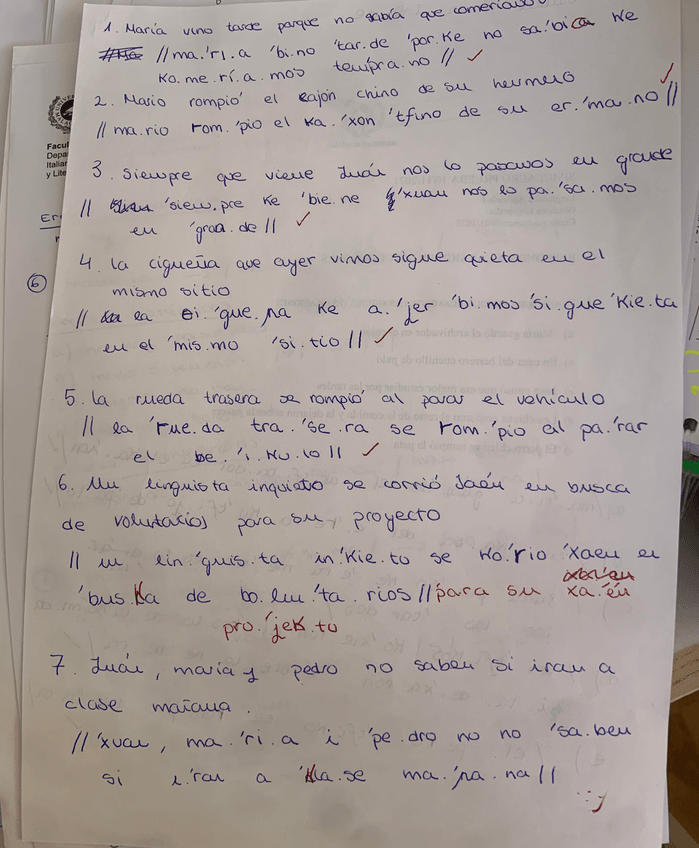 1. María vino tarde porque no sabía que comeríamos
// ma.'ri.a 'bi.no 'tar.de 'por.ke no sa.'bi.a ke
ko.me.rí.a.mos tempra.no //
2. Mario rompió el cajón chino de su hermano
// ma.rio rom.'pio el ka.'xon 'tʃino de su er.'ma.no //
3. Siempre que viene Juán nos lo pasamos en grande
// 'siem.pre ke 'bie.ne 'xuan nos lo pa.'sa.mos
en 'gran.de //
4. la cigueña que ayer vimos sigue quieta en el
mismo sitio
// la θi.'gue.ɲa ke a.'jer 'bi.mos 'si.gue 'kie.ta
en el 'mis.mo 'si.tio //
5. la rueda trasera se rompió al parar el vehículo
// la 'rue.da tra.'se.ra se rom.'pio al pa.'rar
el be.'i.ku.lo //
6. Un linguista inquieto se corrió Jaén en busca
de volutarios para su proyecto
// un lin.'guis.ta in.'kie.to se ko.'rio 'xaen en
'bus.ka de bo.lun.'ta.rios // para su xa.'én
pro.'jek.to
7. Juán, maría y pedro no saben si iran a
clase mañana.
// 'xuan, ma.'ri.a i 'pe.dro no no 'sa.ben
si i.'ran a 'kla.se ma.'ɲa.na //
Facul
Depa
Italian
y Lite
6